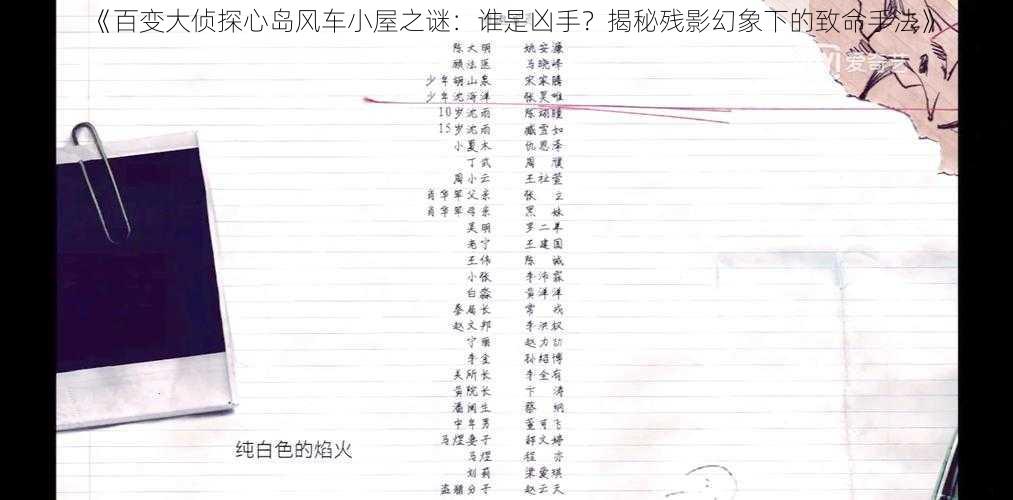 《百变大侦探心岛风车小屋之谜：谁是凶手？揭秘残影幻象下的致命手法》
爱奇艺
陈大明 姚安濂
顾法医 马晓峰
少年胡山泉 宋家腾
少年沈海洋 张昊唯
10岁沈雨 陈翊曈
15岁沈雨 臧雪如
小夏木 仇恩泽
丁武 周 濮
周小云 王祉萱
肖华军父亲 张 立
肖华军母亲 黑 妹
吴明 罗二羊
老宁 王建国
王伟 陈 诚
小张 李沛霖
白淼 黄洋洋
秦局长 常 戎
赵文邦 李洪权
宁丽
李金 孙绍博
吴所长 李全有
黄院长 卞 涛
潘闻生 蔡 纲
中年男 董可飞
马煜妻子 郝文婷
马煜 程 亦
刘莉 梁爱琪
盗猎分子 赵云天
纯白色的焰火